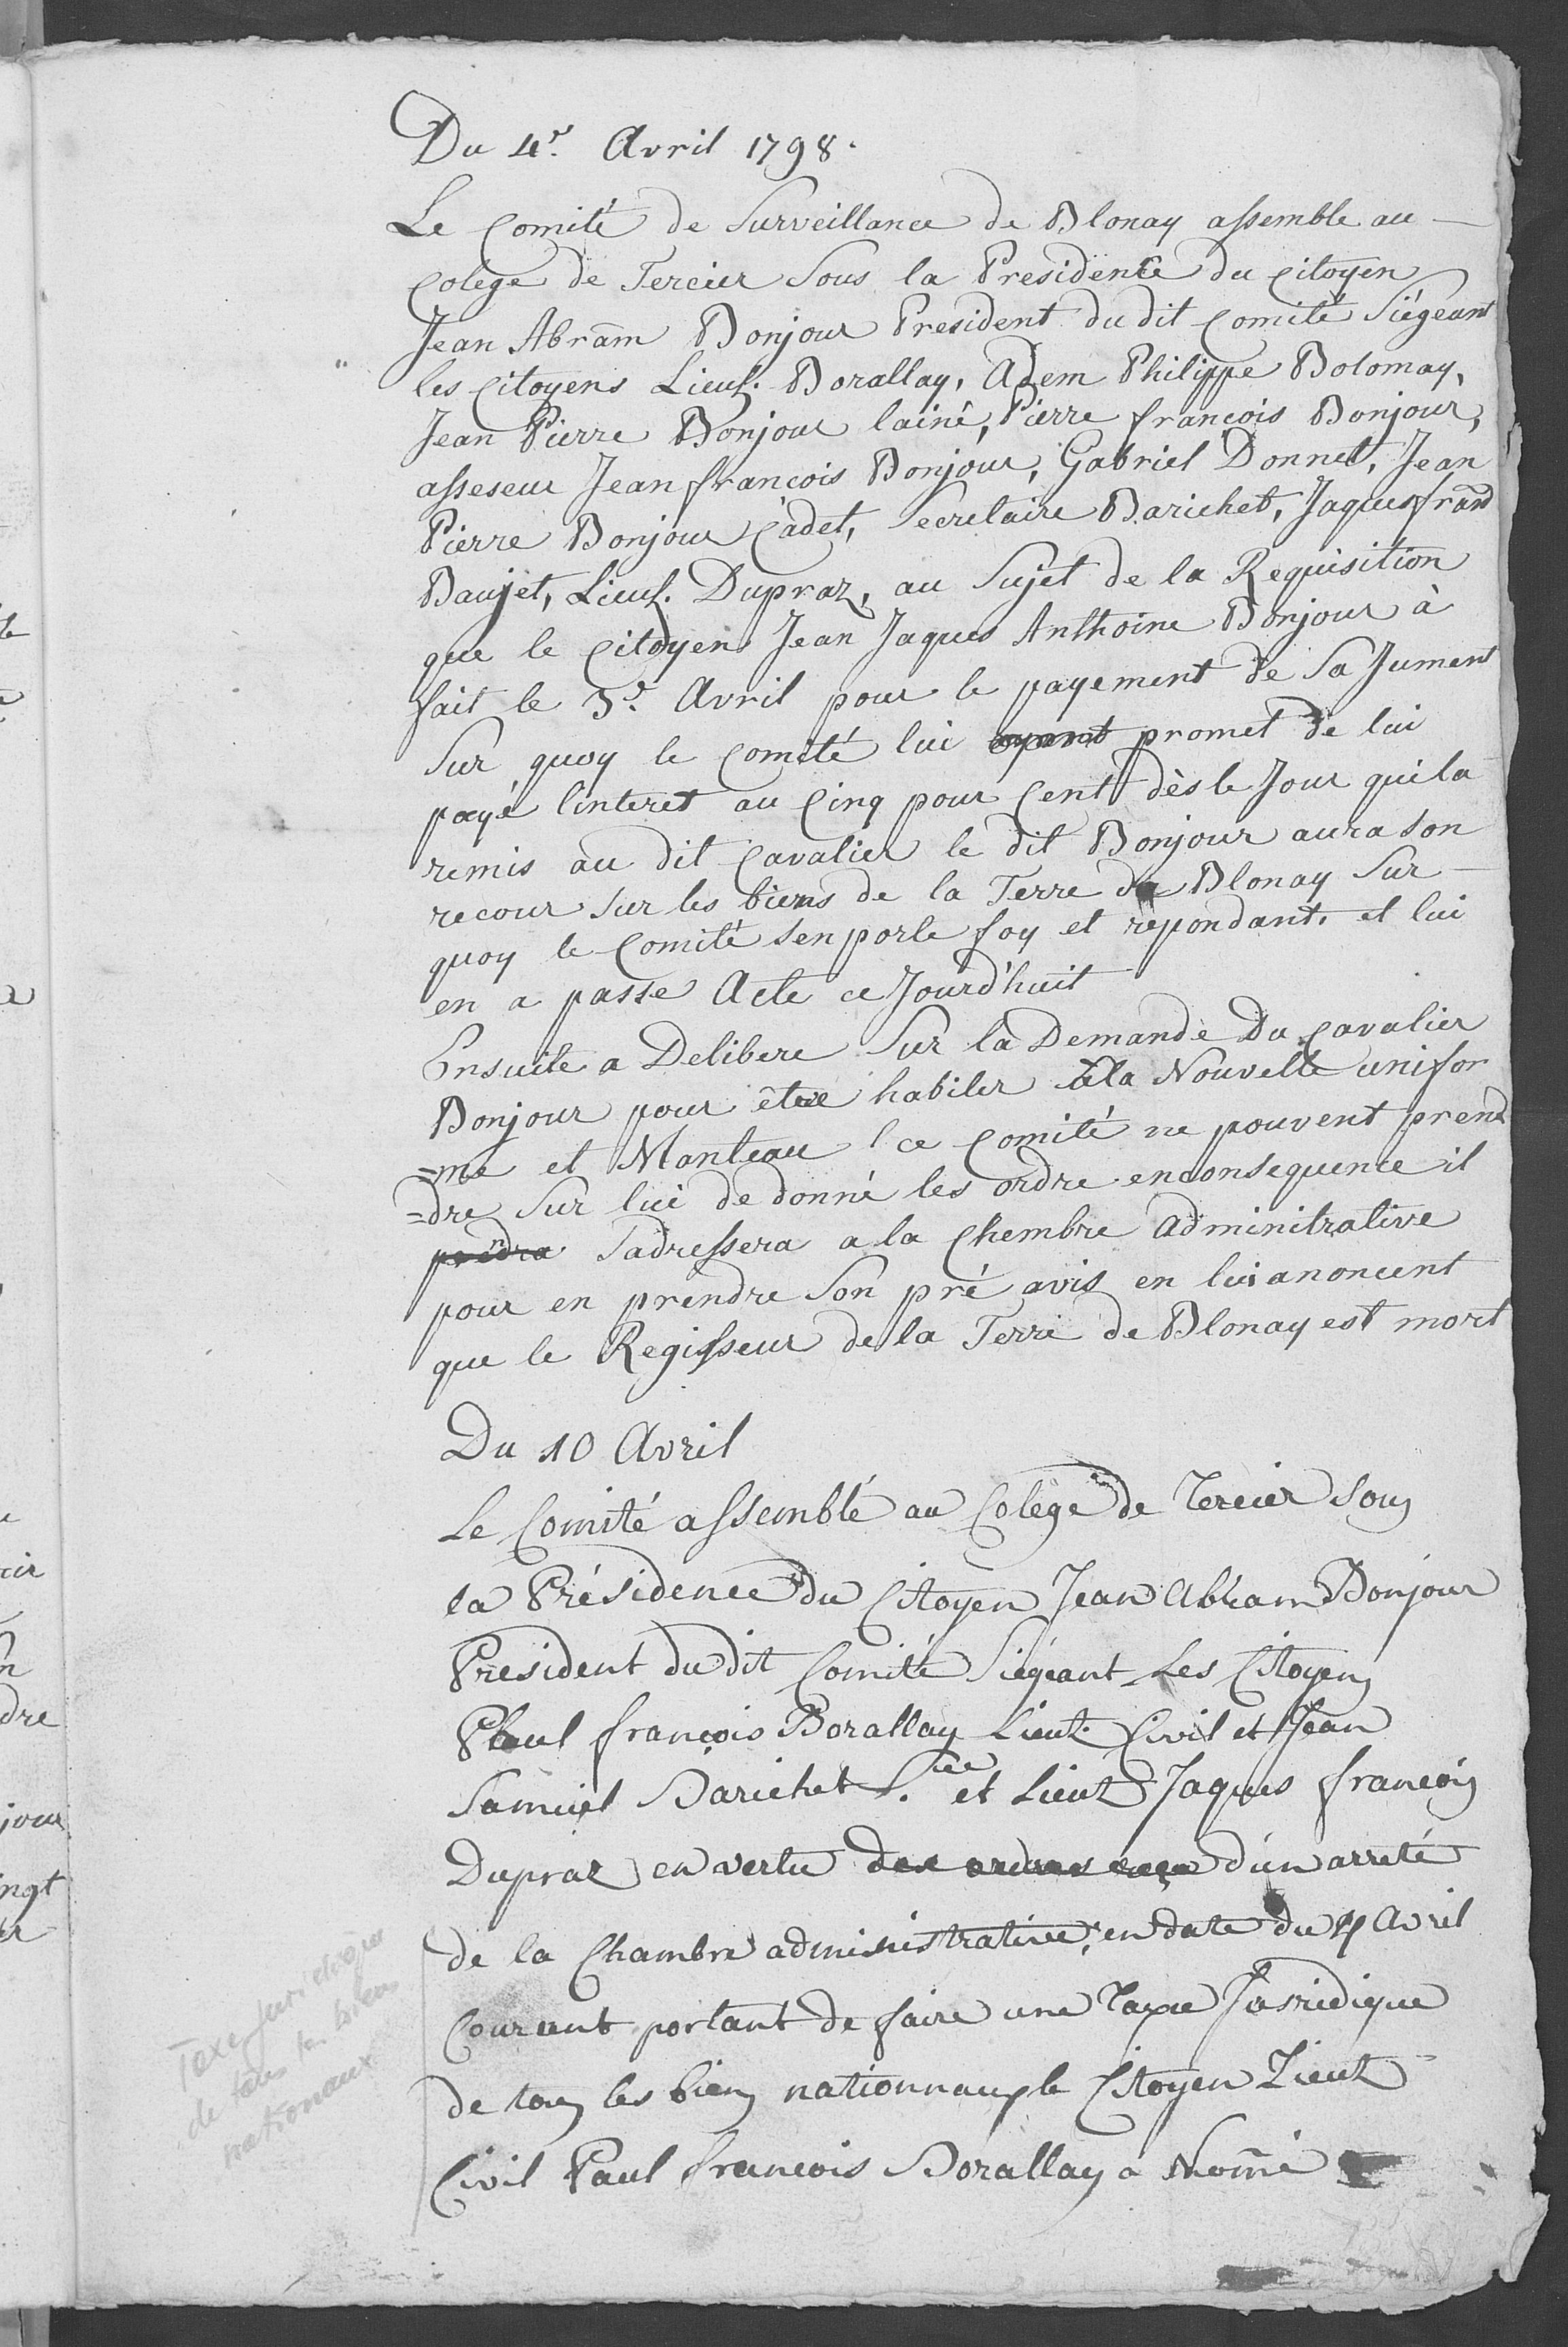 Du 4.e Avril 1798.
Le Comité de Surveillance de Blonay assemble au
Colège de Tercier Sous la Presidence du Citoyen
Jean Abram Bonjour President du dit Comité Siégeant
les Citoyens Lieut. Borallay, Adem Philippe Bolomay,
Jean Pierre Bonjour lainé, Pierre francois Bonjour,
asseseur Jean francois Bonjour, Gabriel Donnet, Jean
Pierre Bonjour Cadet, Secretaire Barichet, Jaques frand
Baujet, Lieut. Dupraz, au Sujet de la Requisition
que le Citoyen Jean Jaques Anthoine Bonjour à
fait le 3.e Avril pour le payement de Sa Jument
Sur quoy le Comité lui ayant promet de lui
payé linteret au Cinq pour Cent dès le Jour quila
remis au dit Cavalier le dit Bonjour aura son
recour sur les biens de la Terre de Blonay Sur
quoy le Comité s'en porte foy et repondant. et lui
en a passe Acte ce Jourd'huit
Ensuite a Delibere Sur la Demande Du Cavalier
Bonjour pour être habiler à la Nouvelle unifor
=me et Manteau ce Comité ne pouvent prend
=dre Sur lui de donné les ordre enconsequence il
prendra Sadressera a la Chembre adminitrative
pour en prendre Son pré avis en lui anoncent
que le Regisseur de la Terre de Blonay est mort
Du 10 Avril
Le Comité assemblé au Colège de Tercier Sous
la Présidence du Citoyen Jean Abram Bonjour
President du dit Comité Siégeant Les Citoyens
Paul françois Borallay Lieut. Civil et Jean
Samuel Barichet S.ire et Lieut Jaques françois
Dupraz en vertu des ordres reçu d'un arreté
de la Chambre administrative, en date du 4 Avril
Courant portant de faire une Taxe Juridique
de tous les biens nationnaux le Citoyen Lieut
Civil Paul francois Borallay a Nomé
Taxe juridique
de tous les biens
nationaux